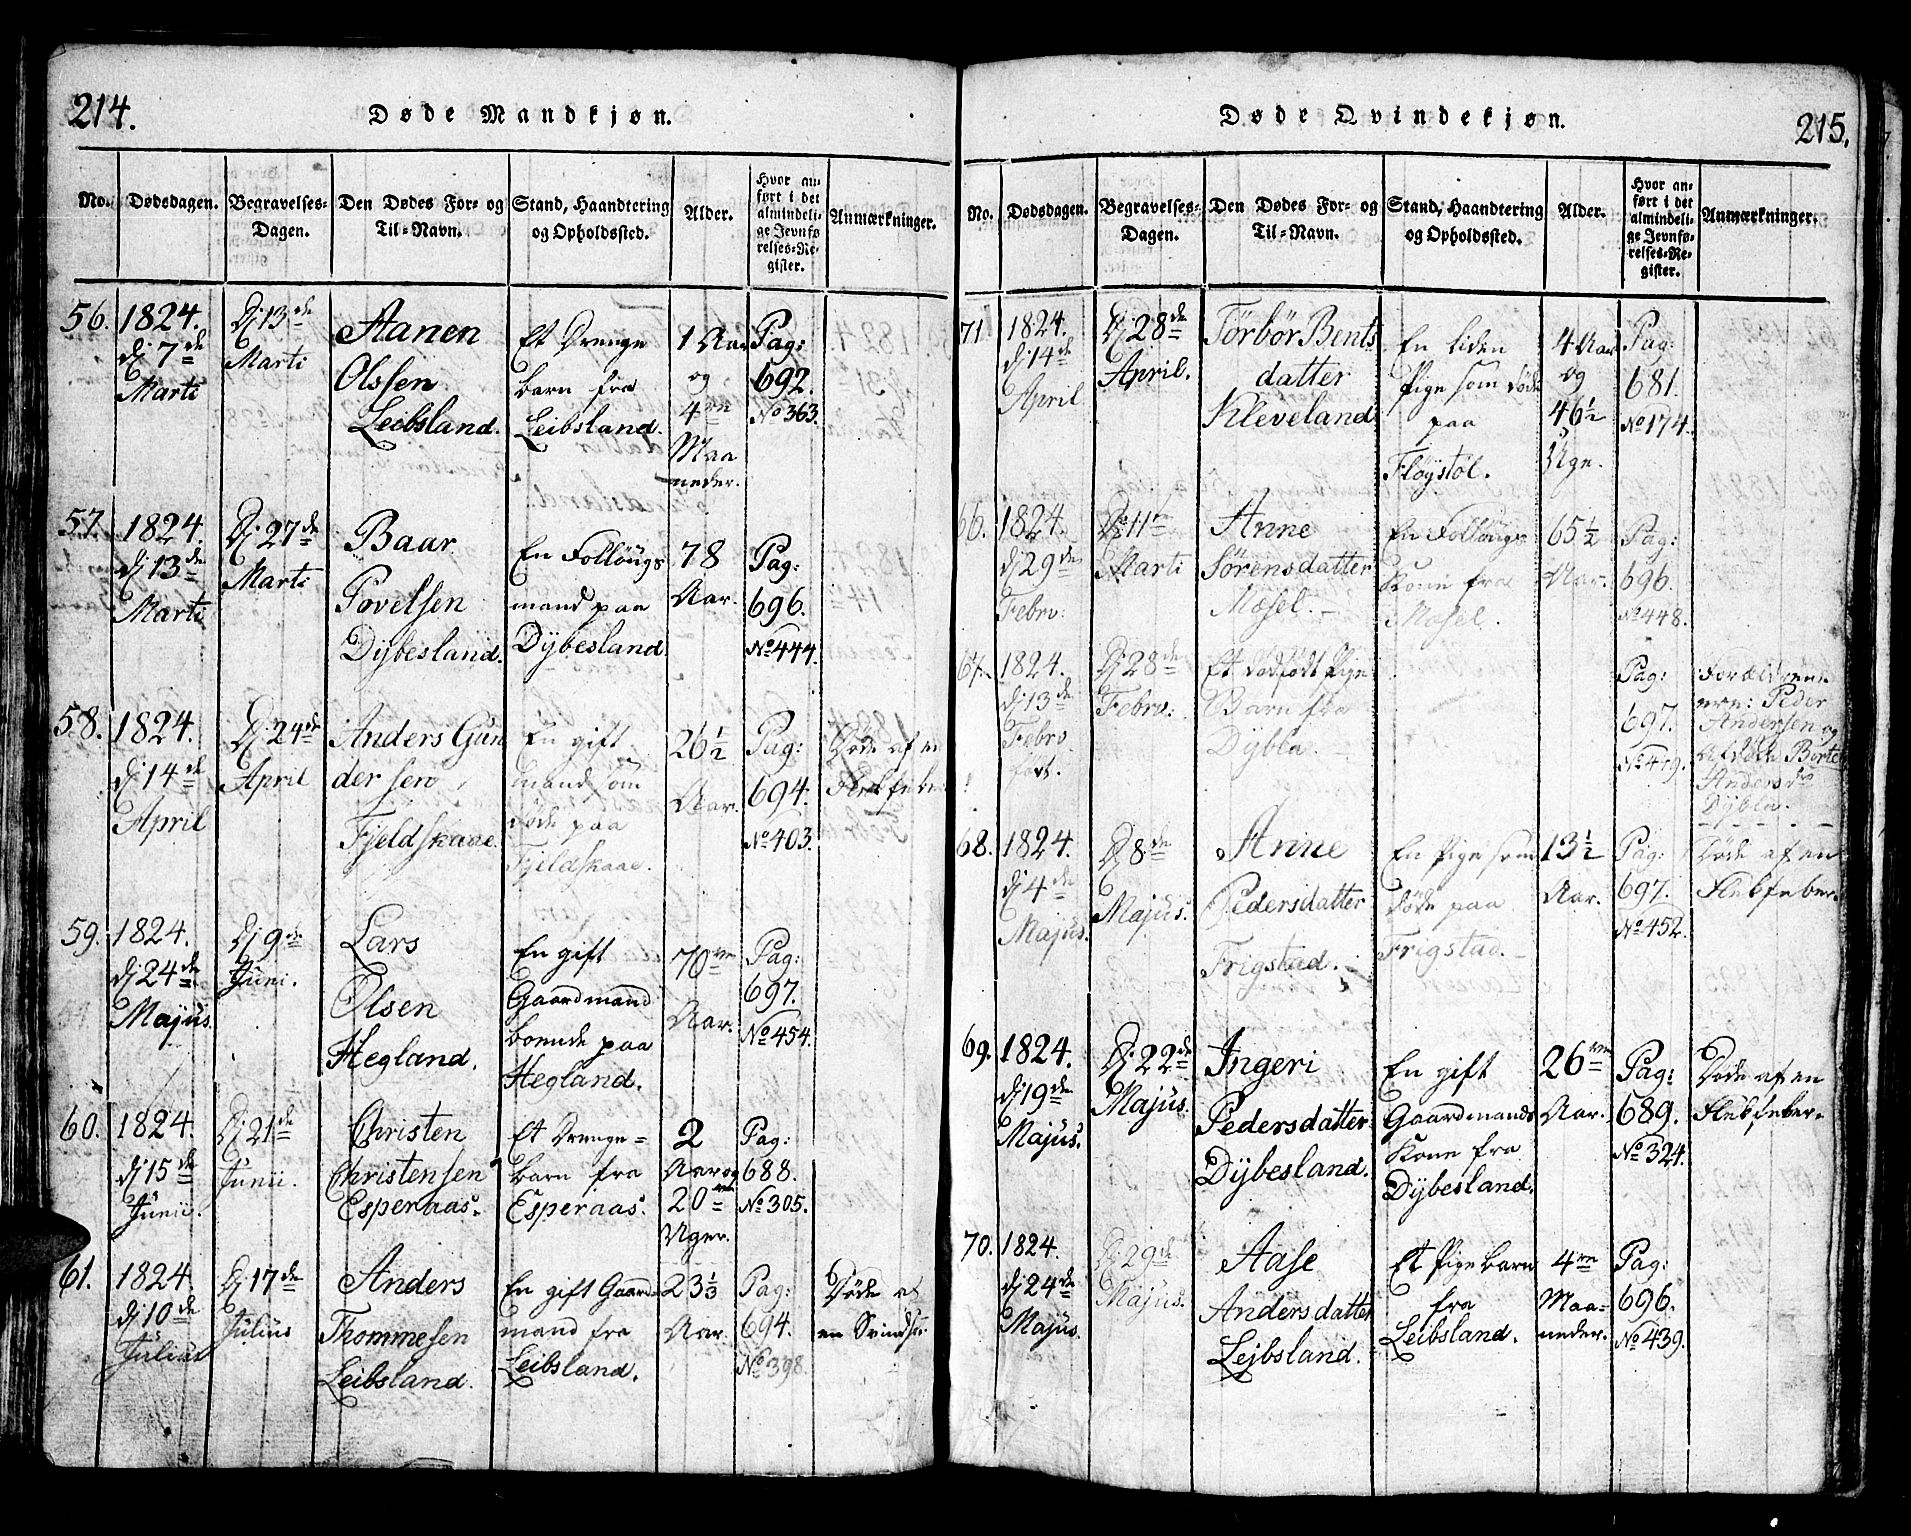 214.
Døde Mandkjøn.
No. Dødsdagen. Begravelses-Dagen. Den Dødes For- og Til-Navn. Stand, Haandtering og Opholdssted. Alder. Hvor anført i det almindelige Jevnførelses-Register. Anmærkninger.
56.
1824.
Dj 7de
Marti
Dj 13de
Marti
Aanen
Olssen
Leibsland.
Et Drenge
barn fra
Leibsland.
1 Aar
og
4re
Maa
neder.
Pag:
692.
No 363.
57.
1824.
Dj 13de
Marti
Dj 27de
Marti
Baar
Povelsen
Dÿbesland.
En Follöugs
mand paa
Dÿbesland
78
Aar.
Pag:
696.
No 444.
58.
1824.
Dj 14de
April
Dj 24de
April
Anders Gun
dersen
Fjeldskaae.
En gift
mand som
døde paa
Fjeldskaae.
26½
Aar.
Pag:
694.
No 403.
Døde af en
59.
1824.
Dj 24de
Majus.
Dj 9de
Juni.
Lars
Olsen
Hegland.
En gift
Gaardmand
boende paa
Hegland.
70ve
Aar.
Pag:
697.
No 454.
60.
1824.
Dj 15de
Junii.
Dj 21de
Junii.
Christen
Christensen
Esperaas.
Et Drenge=
barn fra
Esperaas.
2
Aar og
20ve
Uger.
Pag:
688.
No 305.
61.
1824.
Dj 10de
Julius
Dj 17de
Julius
Anders
Thommesen
Leibsland.
En gift Gaard=
mand fra
Leibsland.
23⅓
Aar.
Pag:
694.
No 398.
Døde af
en
215.
Døde Qvindekjøn.
No. Dødsdagen. Begravelses-Dagen. Den Dødes For- og Til-Navn. Stand, Haandtering og Opholdssted. Alder. Hvor anført i det almindelige Jevnførelses-Register. Anmærkninger.
71.
1824.
Dj 14de
April
Dj 28de
April.
Törbör Bents
datter
Kleveland
En liden
Pige som døde
paa
Flöystöl.
4 Aar
og
46½
Uge.
Pag:
681.
No 174.
66.
1824.
Dj 29de
Febrv.
Marti
Anne
Sørensdatter
Mosel.
En Follöugs
Kone fra
Mosel.
65½
Aar.
Pag:
696.
No 448.
67.
1824.
Dj 13de
Febrv.
Dj 28de
Febrv:
Et dødfödt Pige
Barn fra
Dÿbla.
Pag:
697.
No 449.
Forældrene
ere: Peder
Andersen og
Afdøde Borte
Andersdr
Dÿbla.
68.
1824.
Dj 4de
Majus.
Dj 8de
Majus.
Anne
Pedersdatter
Frigstad.
En Pige som
døde paa
Frigstad.
13½
Aar.
Pag:
697.
No 452.
Døde af en
Flekfeber.
69.
1824.
Dj 19de
Majus.
Dj 22de
Majus.
Ingeri
Pedersdatter
Dÿbesland.
En gift
Gaardmands
Kone fra
Dÿbesland.
26
Aar.
Pag:
689.
No 324.
Døde af en
Flekfeber.
70.
1824.
Dj 24de
Majus.
Dj 29de
Majus.
Aase
Andersdatter
Lejbsland.
Et Pigebarn
fra
Leibsland.
4re
Maa=
neder.
Pag:
696.
No 439.